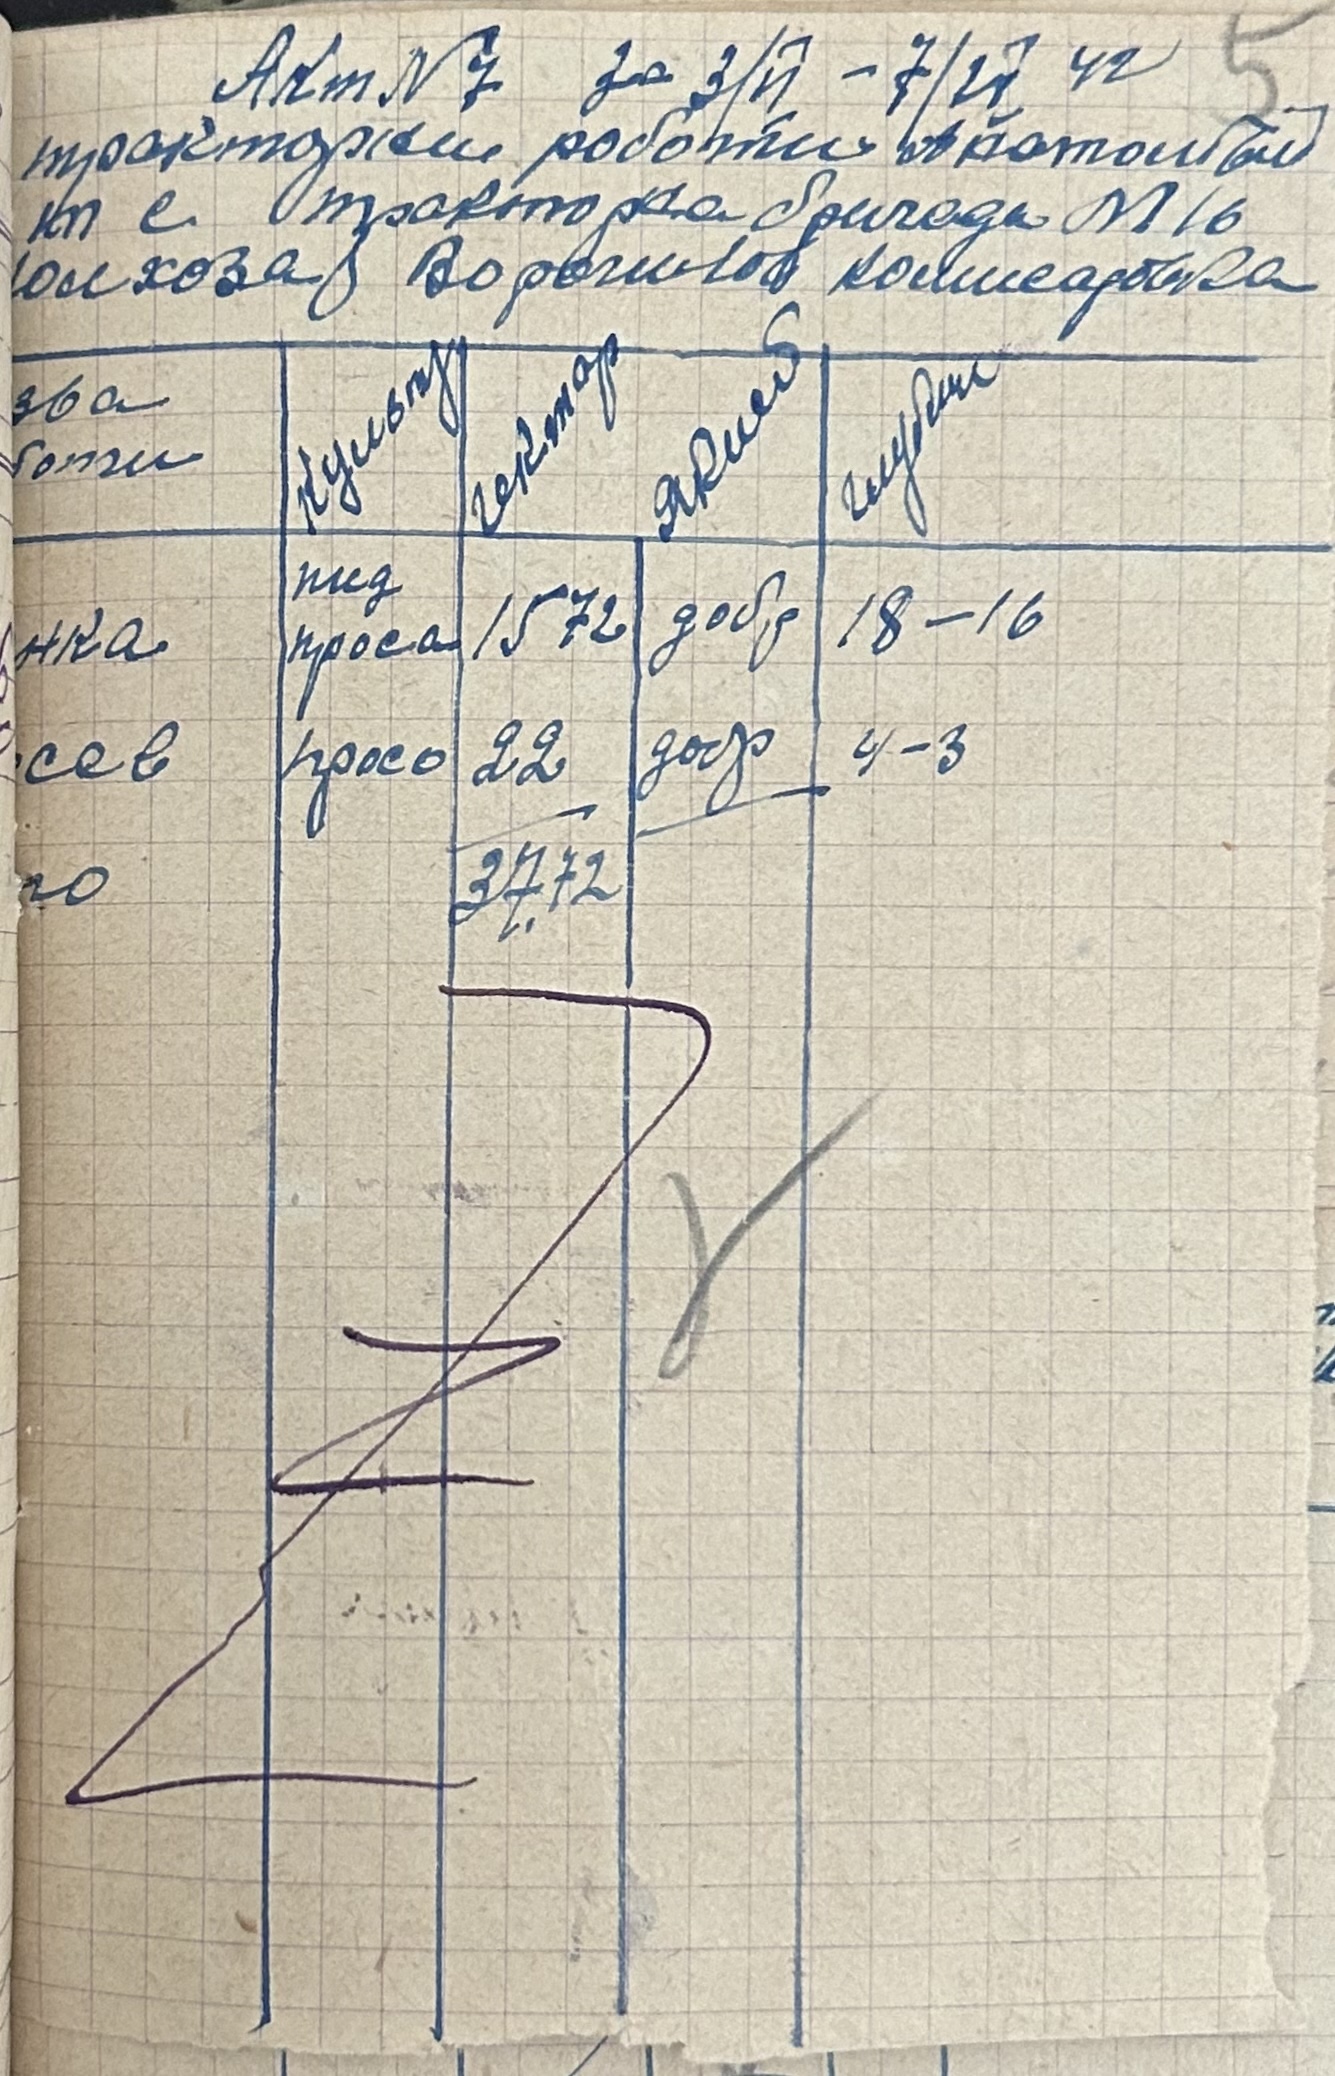 5
Акт N 7 за 3/VI – 7/VI 42
тракторни роботи
мт с. тракторна бригада N 16
колхоза Ворошилов комисарівка
зва
боти
Культур
гектар
Якист
глубин
нка
пид
проса
15 72
добр
18 – 16
сев
просо
22
добр
4 – 3
го
37,72